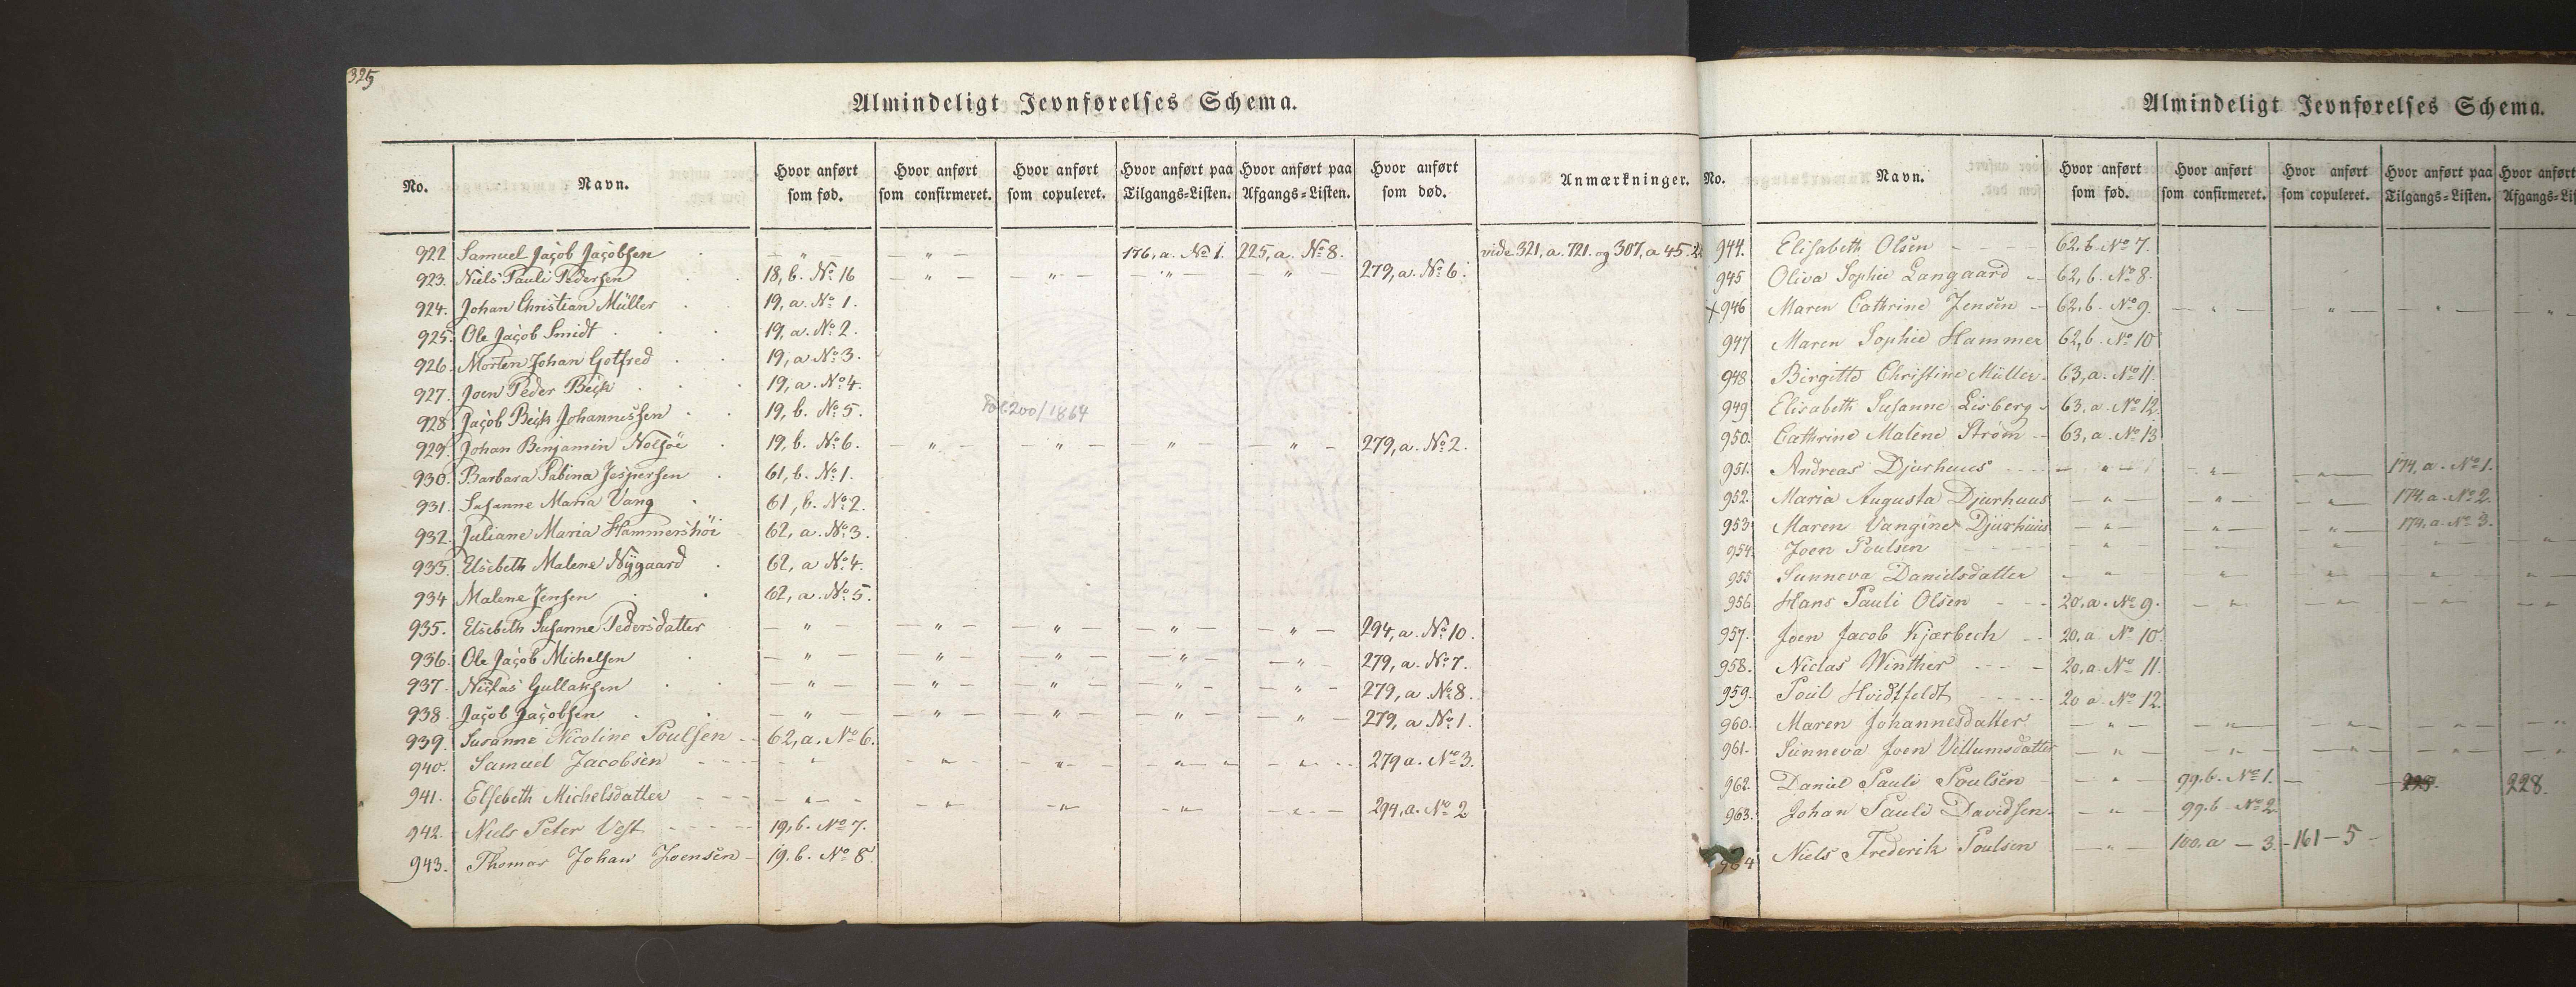 325
Almindeligt Jevnførelses Schema.
No. Navn. Hvor anført som fød. Hvor anført som confirmeret. Hvor anført som copuleret. Hvor anført paa Tilgangs-Listen. Hvor anført paa Afgangs-Listen. Hvor anført som død. Anmærkninger.
922 Samuel Jacob Jacobsen — " — — " — 176, a. No 1. 225, a. No 8. vide 321, a. 721. og 307, a 45.
923. Niels Pauli Pedersen 18, b. No 16 — " — — " — — " — — " — 279, a. No 6.
924. Johan Christian Müller 19, a. No 1.
925. Ole Jacob Smidt 19, a. No 2.
926. Morten Johan Gotfred 19, a No 3.
927. Joen Peder Beck 19, a. No 4.
928 Jacob Beck Johannessen 19, b. No 5. 200/1864
929. Johan Benjamin Nolsöe 19, b. No 6. — " — — " — — " — — " — 279, a. No 2.
930. Barbara Sabina Jespersen 61, b. No 1.
931. Susanne Maria Vang 61, b. No 2.
932. Juliane Maria Hammershöi 62, a. No 3.
933. Elsebeth Malene Nÿgaard 62, a No 4.
934 Malene Jensen 62, a. No 5.
935. Elsebeth Susanne Pedersdatter — " — — " — — " — — " — — " — 294, a. No 10.
936. Ole Jacob Michelsen — " — — " — — " — — " — — " — 279, a. No 7.
937. Niclas Gullaksen — " — — " — — " — — " — — " — 279, a No 8.
938. Jacob Jacobsen — " — — " — — " — — " — — " — 279, a No 1.
939. Susanne Nicoline Poulsen 62, a. No 6.
940. Samuel Jacobsen — " — — " — — " — — " — — " — 279 a. No 3.
941. Elsebeth Michelsdatter — " — — " — — " — — " — — " — 294, a. No 2
942. Niels Peter Vest 19, b. No 7.
943. Thomas Johan Joensen 19. b. No 8.
Almindeligt Jevnførelses Schema.
No. Navn. Hvor anført som fød. Hvor anført som confirmeret. Hvor anført som copuleret. Hvor anført paa Tilgangs-Listen. Hvor anført Afgangs-Lis
944. Elisabeth Olsen 62. b. No 7.
945 Oliva Sophie Langaard 62, b. No 8.
x 946 Maren Cathrine Jensen 62, b. No 9. — " — — " — — " — — " —
947 Maren Sophie Hammer 62, b. No 10
948 Birgitte Christine Müller 63, a. No 11.
949 Elisabeth Susanne Lisberg 63, a. No 12.
950. Cathrine Malene Strøm 63, a. No 13
951. Andreas Djurhuus — " — — " — — " — 174, a. No 1.
952. Maria Augusta Djurhuus — " — — " — — " — 174, a. No 2.
953 Maren Vangine Djurhuus — " — — " — — " — 174, a. No 3.
954. Joen Poulsen — " — — " — — " — — " — — " —
955 Sunneva Danielsdatter — " — — " — — " — — " — — " —
956 Hans Pauli Olsen 20, a. No 9. — " — — " — — " — — " —
957. Joen Jacob Kjærbech 20, a No 10.
958. Niclas Winther 20, a. No 11.
959. Poul Hvidtfeldt 20 a. No 12.
960. Maren Johannesdatter — " — — " — — " — — " — — " —
961. Sunneva Joen Villumsdatter — " — — " — — " — — " — — " —
962. Daniel Pauli Poulsen — " — 99. b. No 1. — 228.
963. Johan Pauli Davidsen — " — 99. b No 2
964 Niels Frederik Poulsen — " — 100. a — 3. — 161 — 5 —